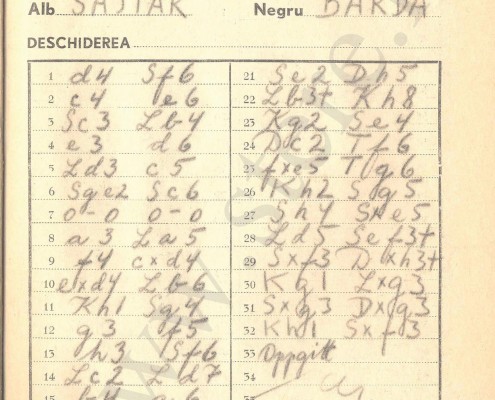 Alb SAJTAR Negru BARDA
DESCHIDEREA
1 d4 Sf6
2 c4 e6
3 Sc3 Lb4
4 e3 d6
5 Ld3 c5
6 Sge2 Sc6
7 0-0 0-0
8 a3 La5
9 f4 cxd4
10 exd4 Lb6
11 Kh1 Sg4
12 g3 f5
13 h3 Sf6
14 Lc2 Ld7
15 b4 a6
21 Se2 Dh5
22 Lb3+ Kh8
23 Kg2 Se4
24 Dc2 Tf6
25 fxe5 Tg6
26 Kh2 Sg5
27 Sh4 Sxe5
28 Ld5 Sef3+
29 Sxf3 Dxh3+
30 Kg1 Lxg3
31 Sxg3 Dxg3
32 Kh1 Sxf3
33 Oppgitt
34
35